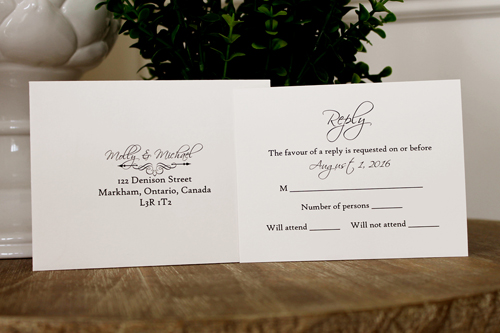 Molly & Michael
122 Denison Street
Markham, Ontario, Canada
L3R 1T2
Reply
The favour of a reply is requested on or before
August 1, 2016
M
Number of persons
Will attend Will not attend